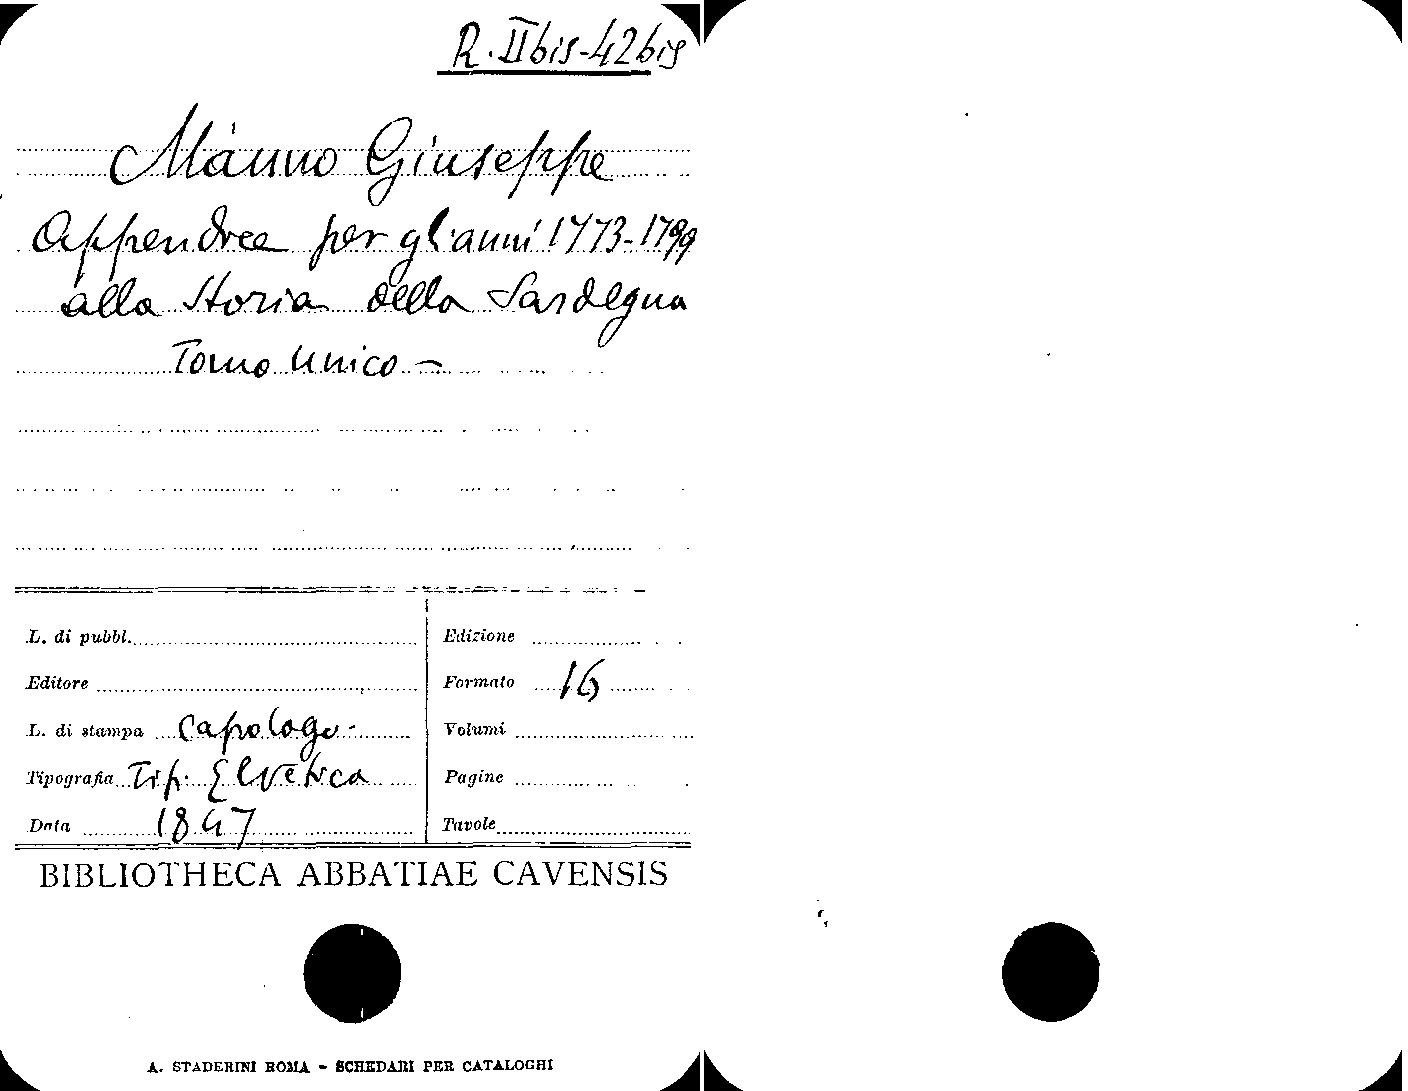 R. II bis - 42 bis
Manno Giuseppe
Appendice per gl'anni 1773-1799
alla Storia della Sardegna
Tomo unico -
L. di pubbl.
Edizione
Editore
Formato 16
L. di stampa Capolago -
Volumi
Tipografia Tip. Elvetica
Pagine
Data 1847
Tavole
BIBLIOTHECA ABBATIAE CAVENSIS
A. STADERINI ROMA - SCHEDARI PER CATALOGHI